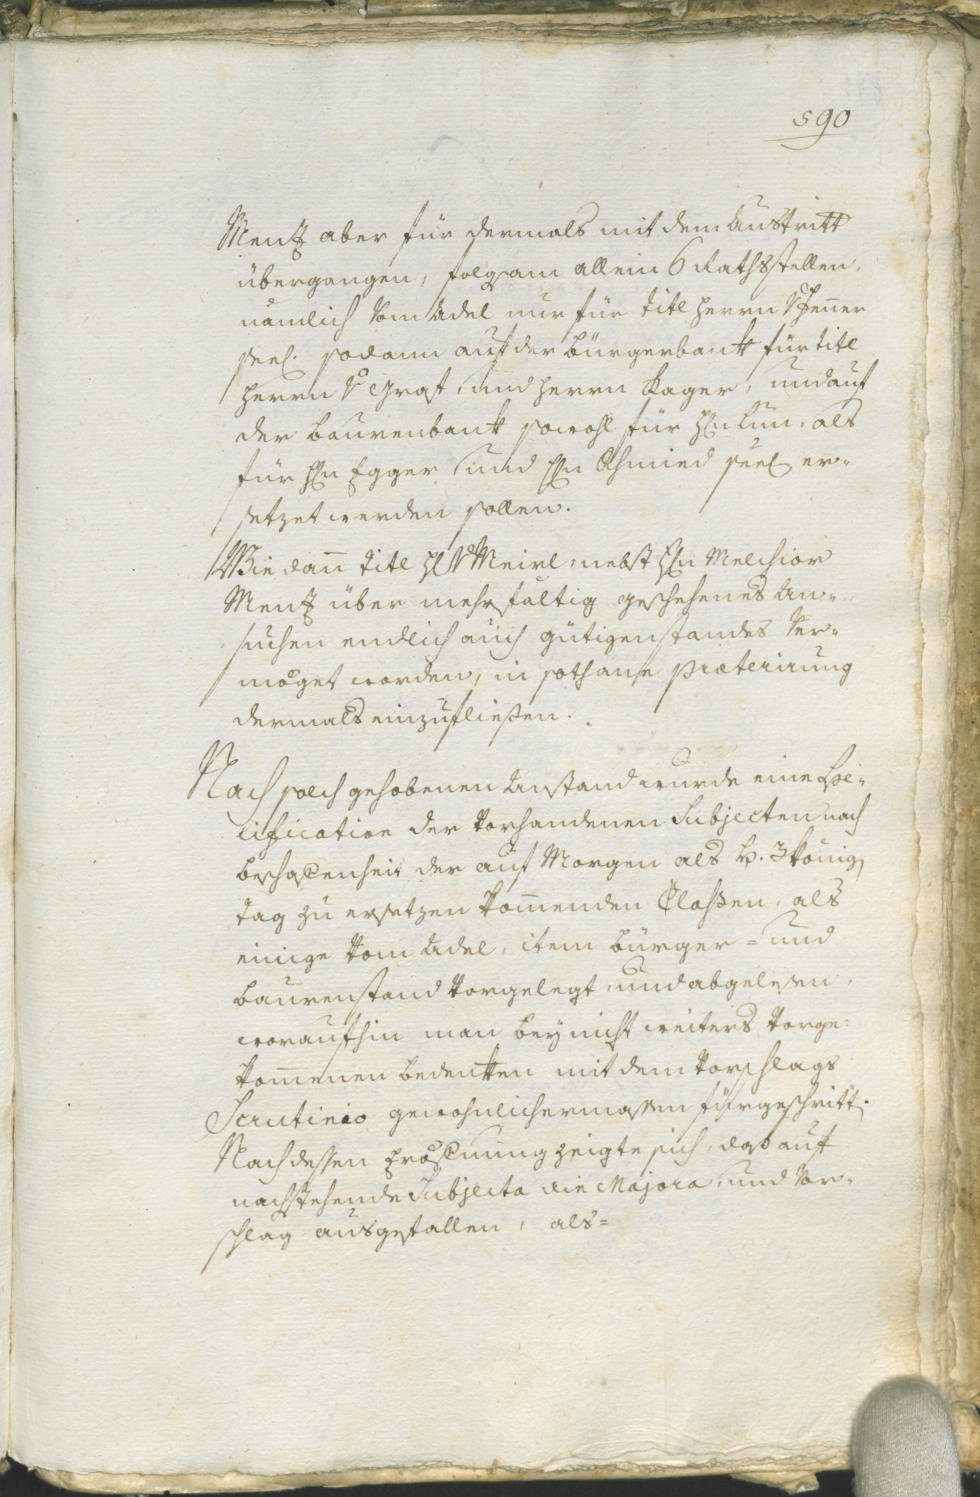 590
Mentz aber für dermals mit dem Austritt
übergangen, folgsam allein 6 Rathsstellen,
nämlich vom Adel nur für titl Herrn v Jenner
seel. sodann auf der Bürgerbankh für titl
Herrn v Graf, und Herrn Kager, und auf
der Baurenbankh sowohl für Hln Lun, als
für Hln Egger und Hln Schmied seel er-
setzet werden sollen.
Wie dañ titl Hl v Meirl, nebst Hln Melchior
Mentz über mehrfältig geschehenes An-
suchen endlich auch gütigenstandes ver-
möget worden, in sothane præterirung
dermals einzufließen.
Nach solch gehobenen Anstand wurde eine Spe-
cification der vorhandenen Subjecten nach
beschaffenheit der auf Morgen als H. 3 König
tag zu ersetzen kom̄enden Claßen, als
einige vom Adel, item bürger- und
baurenstand vorgelegt, und abgelesen,
woraufhin man bey nicht weiters vorge-
kom̄enen bedenkhen mit dem vorschlags
Scrutinio gewohnlichermassen fürgeschritt.
Nach dessen Eröffnung zeigte sich, das auf
nachstehende Subjecta die Majora, und vor-
schlag ausgefallen, als=